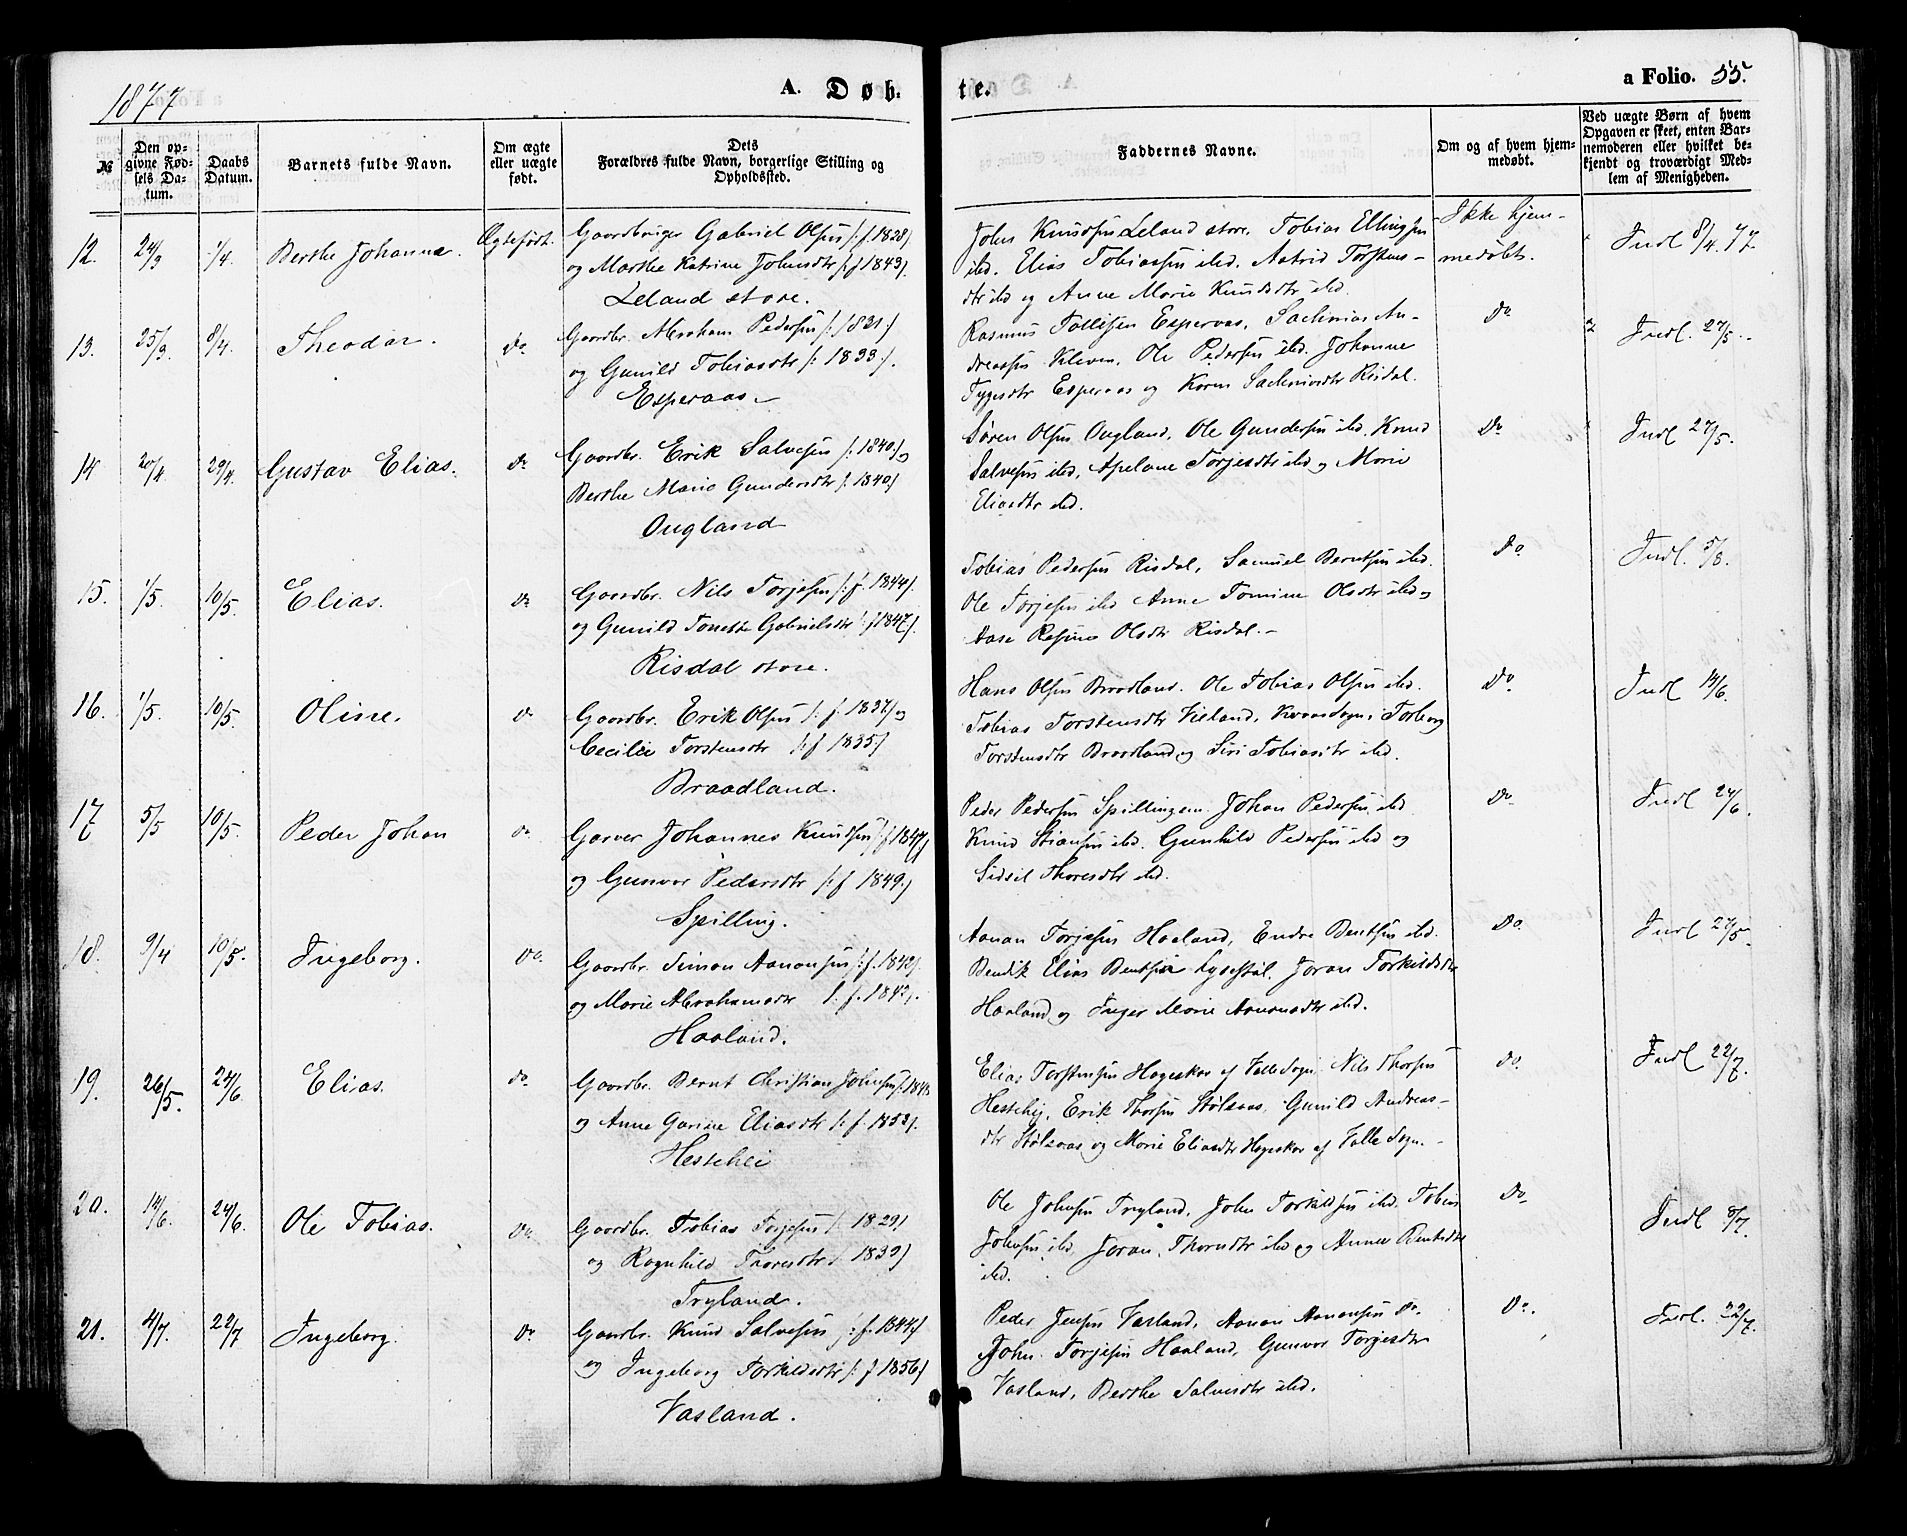 1877
A. Døb-
te.
a Folio. 55.
№
Den op-
givne Fød-
sels Da-
tum.
Daabs
Datum.
Barnets fulde Navn.
Om ægte
eller uægte
født.
Dets
Forældres fulde Navn, borgerlige Stilling og
Opholdssted.
Faddernes Navne.
Om og af hvem hjem-
medøbt.
Ved uægte Børn af hvem
Opgaven er skeet, enten Bar-
nemoderen eller hvilket be-
kjendt og troværdigt Med-
lem af Menigheden.
12. 24/3 1/4. Berthe Johanne. Ægtefødt.
Gaardbruger Gabriel Olsen /: f. 1828/
og Marthe Katrine Johnsdtr /: f 1843/.
Leland store.
John Knudsen Leland store. Tobias Ellingsen
ibd. Elias Tobiassen ibd. Astrid Torstens-
dtr ibd og Anne Marie Knudsdtr ibd.
Ikke hjem-
medøbt.
Indl 8/4. 77.
13. 25/3. 8/4. Theodor. do
Gaardbr. Abraham Pedersen /: 1831./
og Gunild Tobiasdtr /: 1833./.
Esperaas.
Rasmus Tollisen Esperaas, Sachrias An-
dreassen Kleven, Ole Pedersen ibd. Johanne
Tygesdtr Esperaas og Karen Sachriasdtr Risdal.
Do
Indl. 27/5.
14 20/4 29/4. Gustav Elias. do
Gaardbr. Erik Salvesen /: 1840./ og
Berthe Marie Gundersdtr /: 1840./
Ougland
Søren Olsen Ougland, Ole Gundersen ibd. Knud
Salvesen ibd, Torjesdtr ibd og Marie
Eliasdtr ibd.
Do
Indl 27/5.
15. 1/5. 10/5. Elias. do
Gaardbr. Nils Torjesen /: f. 1844/.
og Gunild Tonette Gabrielsdtr /: f 1847/.
Risdal store.
Tobias Pedersen Risdal, Samuel Berntsen ibd.
Ole Torjesen ibd Anne Tomine Olsdtr ibd og
Aase Olsdtr Risdal.
Do
Indl. 5/8.
16. 1/5. 10/5. Oline. do
Gaardbr. Erik Olsen /: f. 1837/ og
Cecilie Torstensdtr /: f 1835/
Braadland.
Hans Olsen Braadland. Ole Tobias Olsen ibd.
Tobias Torstensdtr Vieland, Kvaassogn, Torborg
Torstensdtr Braadland og Siri Tobiasdtr ibd.
Do
Indl 14/6.
17 5/5 10/5. Peder Johan do
Garver Johannes Knudsen /: f 1847/
og Gunvor Pedersdtr /: f 1849./
Spilling.
Peder Pedersen Spillingem. Johan Pedersen ibd
Knud Stiansen ibd. Gunhild Pedersen ibd og
Sidsil Thoresdtr ibd.
Do
Indl 24/6.
18. 9/4 10/5. Ingeborg. do.
Gaardbr. Simon Aanonsen /: f. 1842/.
og Marie Abrahamsdtr /: f. 1843/.
Haaland.
Aanon Torjesen Haaland, Endre Bentsen ibd.
Bendik Elias Bentsen Lyestøl, Joran Torkildsdtr
Haaland og Inger Marie Aanonsdtr ibd.
Do.
Indl 27/5.
19. 26/5. 24/6 Elias. do
Gaardbr. Bernt Christian Johnsen /: 1843
og Anne Gurine Eliasdtr /: f. 1853/.
Hestehei
Elias Torstensen Hageskar af Valle Sogn. Nils Thorsen
Hestehei, Erik Thorsen Stølsaas, Gunild Andreas-
dtr Stølsaas og Marie Eliasdtr Hageskar af Valle Sogn.
Do.
Indl 22/7.
20. 14/6. 24/6. Ole Tobias. do.
Gaardbr. Tobias Torjesen /: 1829/
og Ragnhild Thoresdtr /: 1839/
Tryland.
Ole Johnsen Tryland, John Torkildsen ibd. Tobias
Johnsen ibd, Joran Thorsdtr ibd og Anne Bentsdtr
ibd.
Do
Indl 8/7.
21. 4/7. 22/7 Ingeborg. do
Gaardbr. Knud Salvesen /: f. 1844./
og Ingeborg Torkildsdtr /: f 1856/
Vasland.
Peder Jensen Vasland, Aanon Aanonsen Do.
John Torjesen Haaland, Gunvor Torjesdtr
Vasland, Berthe Salvesdtr ibd.
Do.
Indl. 22/7.